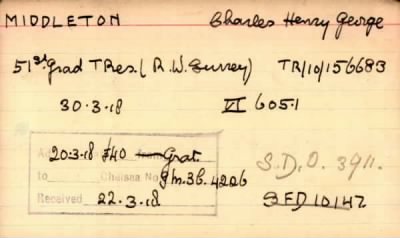 MIDDLETON Charles Henry George
51st Grad T Res. (R.W. Surrey) TR/10/156683
30.3.18 VI 605.1
20.3.18 £40 from Grat.
to Chelsea No. 9/m.36.4226
Received 22.3.18
S.D.O. 3911.
SFD 10147